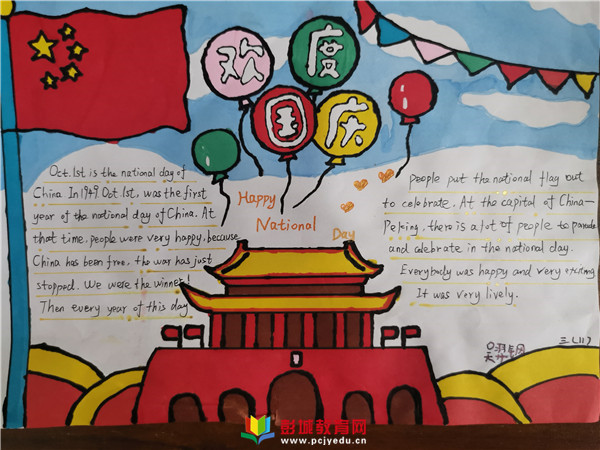 欢度
国庆
Happy
National
Day
Oct.1st is the national day of
China. In 1949. Oct.1st, was the first
year of the national day of China. At
that time, people were very happy, because
China has been free, the war has just
stopped. We were the winner!
Then every year of this day
People put the national flag out
to celebrate. At the capital of China—
Peking, there is a lot of people to parade
and celebrate in the national day.
Everybody was happy and very exciting
It was very lively.
三(11)
彭城教育网
www.pcjyedu.cn